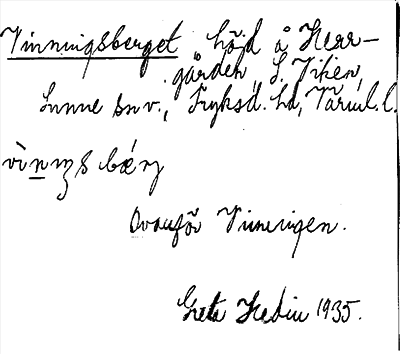 Vinningsberget höjd å Herr-
gården, S. Viken,
Sunne snv., Fryksd. hd, Värml. l.
vìnıŋsbǽrj
Ovanför Vinningen.
Greta Hedin 1935.